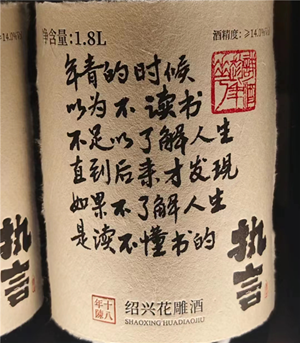 净含量:1.8L
酒精度:≥14.0%vol
年青的时候
以为不读书
不足以了解人生
直到后来才发现
如果不了解人生
是读不懂书的
执言
十八年陈
绍兴花雕酒
SHAOXING HUADIAOJIU
执言